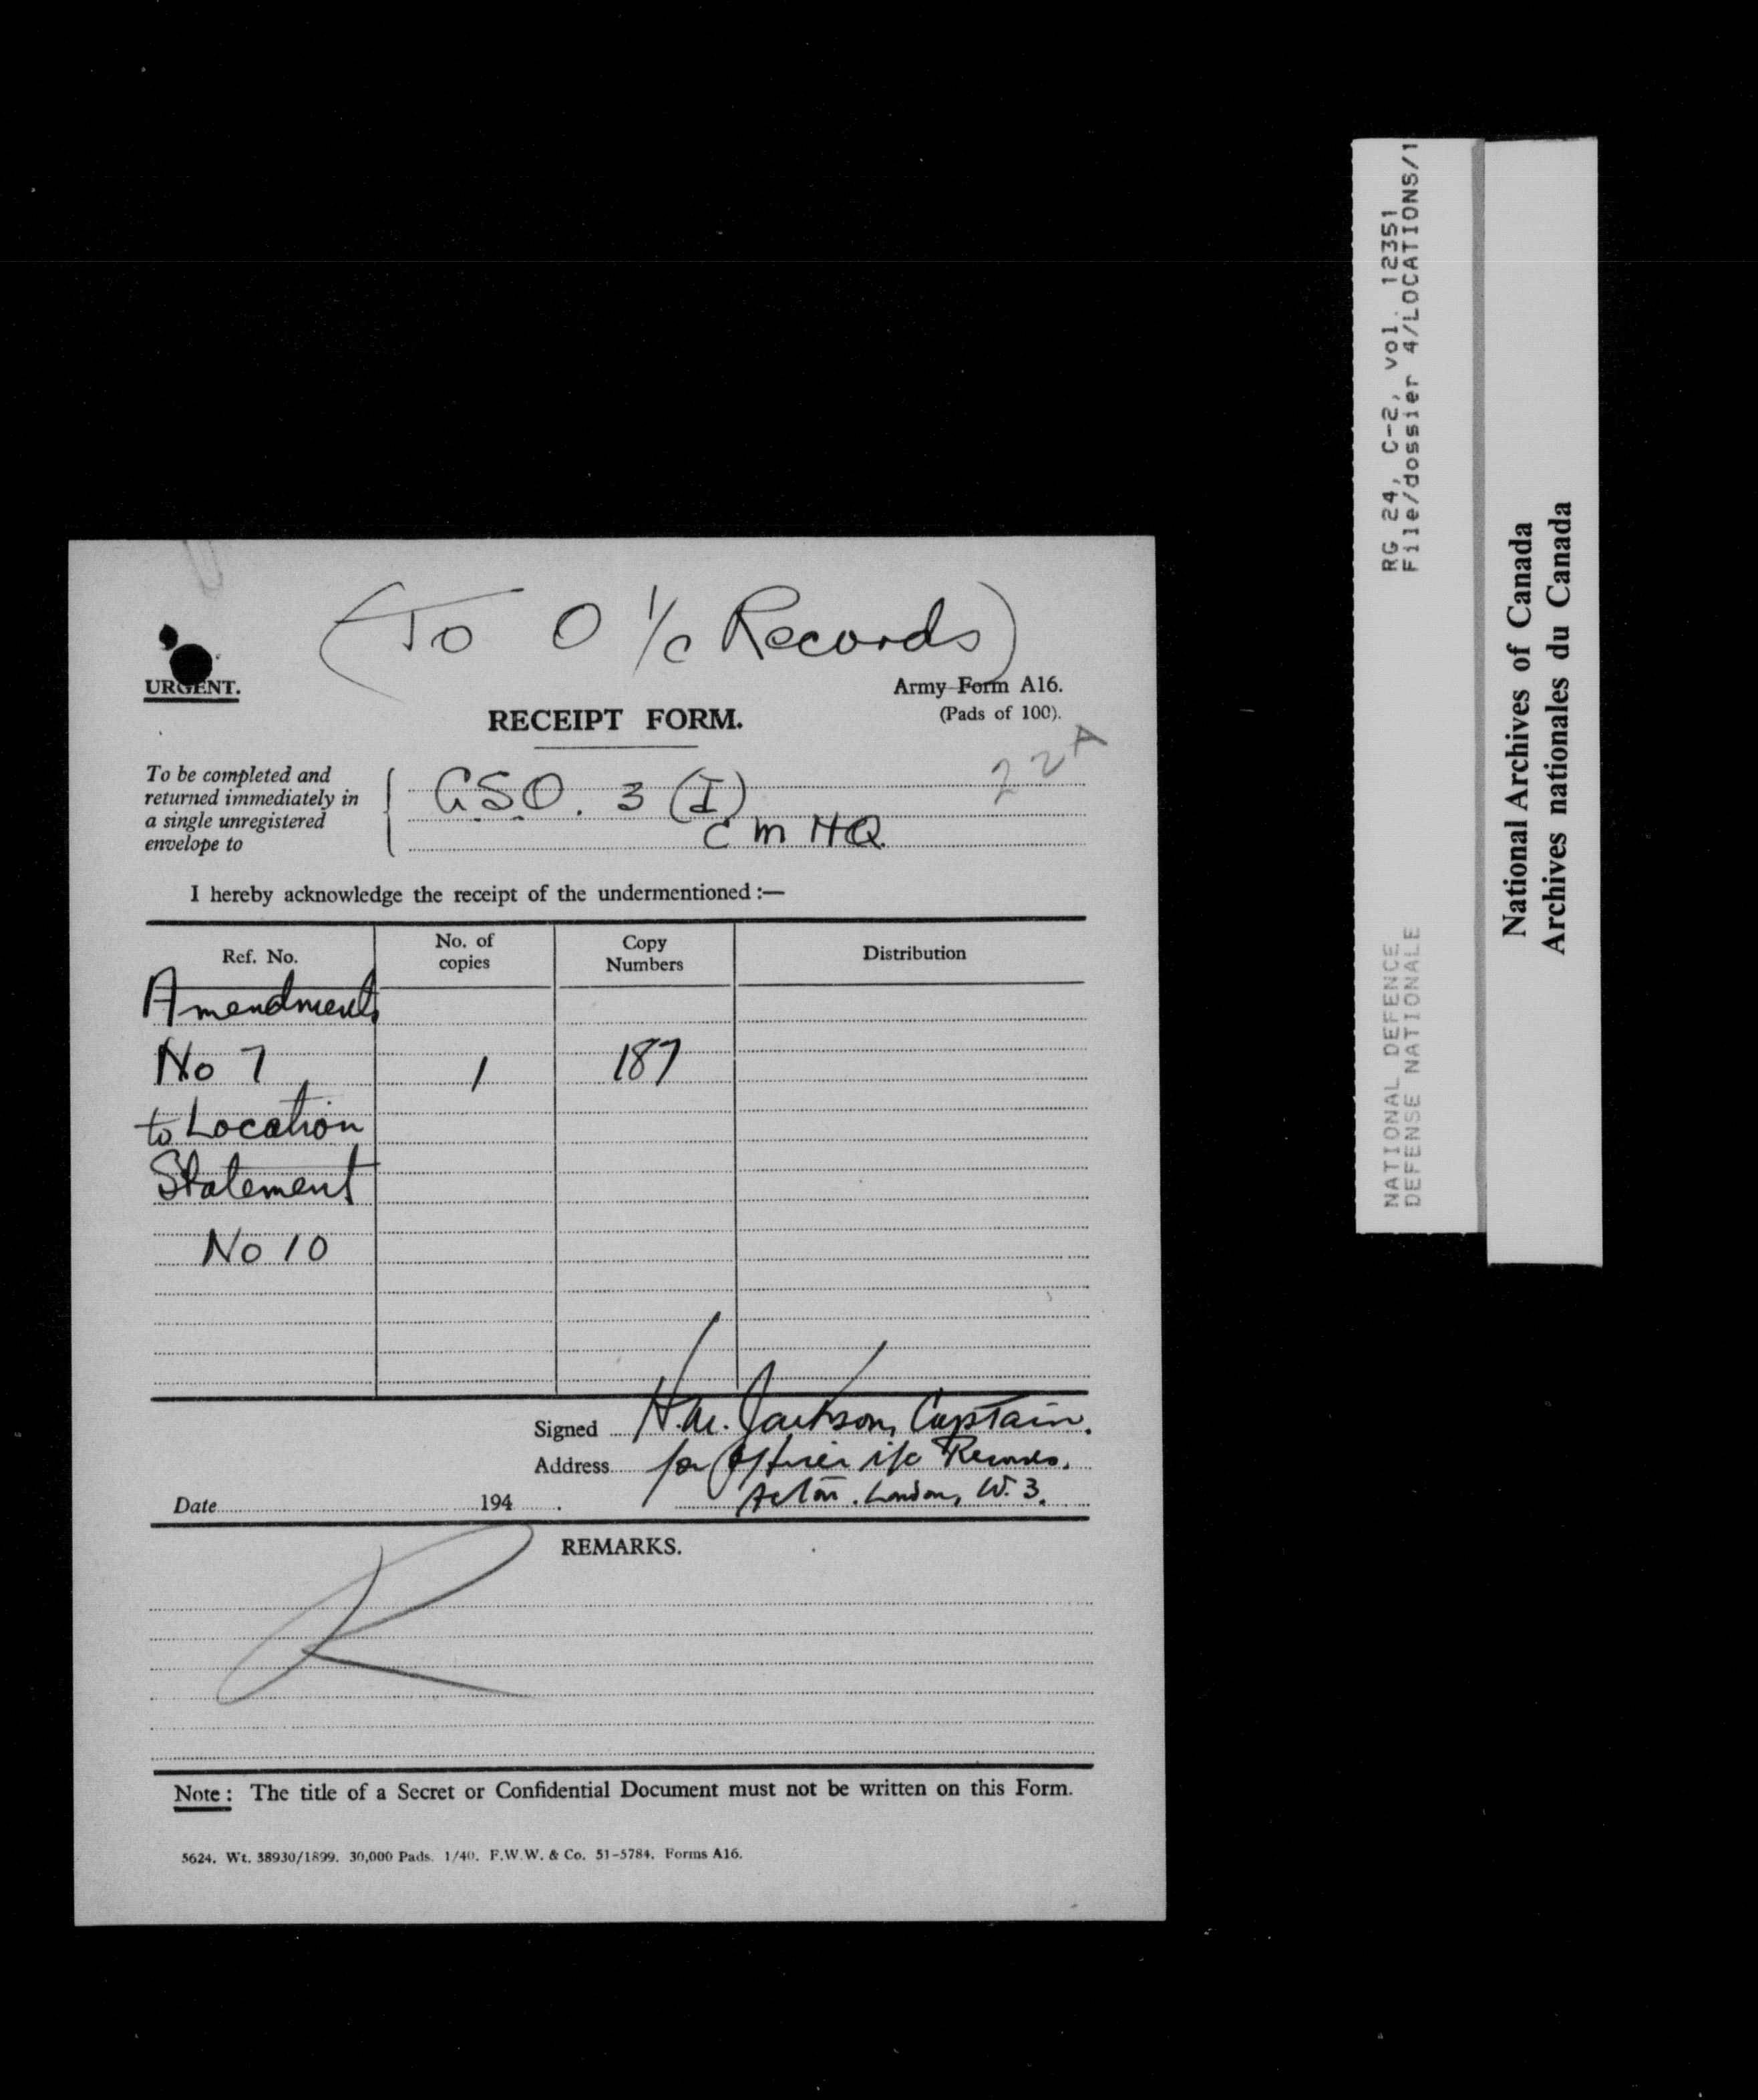 (To O i/c Records)
URGENT.
Army Form A16.
(Pads of 100).
RECEIPT FORM.
22A
To be completed and
returned immediately in
a single unregistered
envelope to
G.S.O. 3 (I)
C M HQ.
I hereby acknowledge the receipt of the undermentioned :—
Ref. No. No. of copies Copy Numbers Distribution
Amendment
No 7 1 187
to Location
Statement
No 10
Signed H.M. Jackson, Captain.
Address for Officer i/c Records.
Acton. London, W. 3.
Date 194 .
REMARKS.
R
Note : The title of a Secret or Confidential Document must not be written on this Form.
5624. Wt. 38930/1899. 30,000 Pads. 1/40. F.W.W. & Co. 51-5784. Forms A16.
RG 24, C-2, vol. 12351
File/dossier 4/LOCATIONS/1
NATIONAL DEFENCE
DEFENSE NATIONALE
National Archives of Canada
Archives nationales du Canada